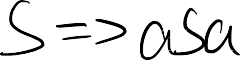 S => aSa